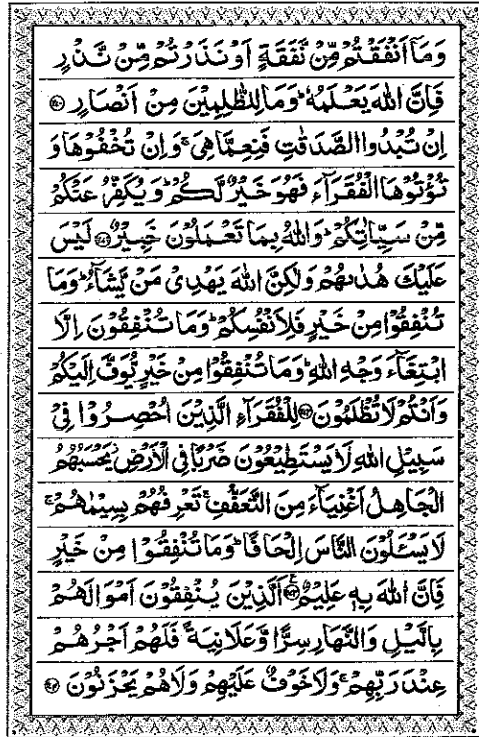 وَمَاۤ اَنْفَقْتُمْ مِّنْ نَّفَقَةٍ اَوْ نَذَرْتُمْ مِّنْ نَّذْرٍ
فَاِنَّ اللّٰهَ يَعْلَمُهٗ ؕ وَمَا لِلظّٰلِمِيْنَ مِنْ اَنْصَارٍ ﴿۲۷۰﴾
اِنْ تُبْدُوا الصَّدَقٰتِ فَنِعِمَّا هِيَ ۚ وَاِنْ تُخْفُوْهَا وَ
تُؤْتُوْهَا الْفُقَرَآءَ فَهُوَ خَيْرٌ لَّكُمْ ؕ وَيُكَفِّرُ عَنْكُمْ
مِّنْ سَيِّاٰتِكُمْ ؕ وَاللّٰهُ بِمَا تَعْمَلُوْنَ خَبِيْرٌ ﴿۲۷۱﴾ لَيْسَ
عَلَيْكَ هُدٰىهُمْ وَلٰكِنَّ اللّٰهَ يَهْدِيْ مَنْ يَّشَآءُ ؕ وَمَا
تُنْفِقُوْا مِنْ خَيْرٍ فَلِاَنْفُسِكُمْ ؕ وَمَا تُنْفِقُوْنَ اِلَّا
ابْتِغَآءَ وَجْهِ اللّٰهِ ؕ وَمَا تُنْفِقُوْا مِنْ خَيْرٍ يُّوَفَّ اِلَيْكُمْ
وَاَنْتُمْ لَا تُظْلَمُوْنَ ﴿۲۷۲﴾ لِلْفُقَرَآءِ الَّذِيْنَ اُحْصِرُوْا فِيْ
سَبِيْلِ اللّٰهِ لَا يَسْتَطِيْعُوْنَ ضَرْبًا فِي الْاَرْضِ ؗ يَحْسَبُهُمُ
الْجَاهِلُ اَغْنِيَآءَ مِنَ التَّعَفُّفِ ۚ تَعْرِفُهُمْ بِسِيْمٰهُمْ ۚ
لَا يَسْـَٔلُوْنَ النَّاسَ اِلْحَافًا ؕ وَمَا تُنْفِقُوْا مِنْ خَيْرٍ
فَاِنَّ اللّٰهَ بِهٖ عَلِيْمٌ ﴿۲۷۳﴾ اَلَّذِيْنَ يُنْفِقُوْنَ اَمْوَالَهُمْ
بِالَّيْلِ وَالنَّهَارِ سِرًّا وَّعَلَانِيَةً فَلَهُمْ اَجْرُهُمْ
عِنْدَ رَبِّهِمْ ۚ وَلَا خَوْفٌ عَلَيْهِمْ وَلَا هُمْ يَحْزَنُوْنَ ﴿۲۷۴﴾